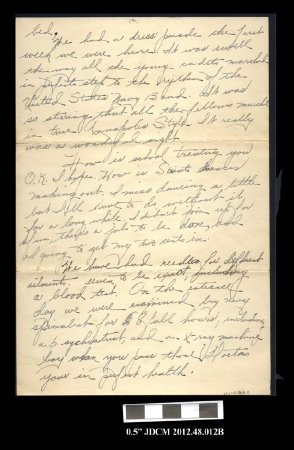 bed.
We had a dress parade the first
week we were here. It was swell
the way all the young cadets marched
in perfect step to the rhythm of the
United States Navy Band. It was
so stirring that all the fellows marched
in true Annapolis Style. It really
was a wonderful sight.
How is school treating you
O.K. I hope. How is
making out. I miss dancing a little
but I'll have to do without it
for a long while. I didn't join up for
fun, there's a job to be done, and
I'm going to get my two cents in.
We have had needles for different
ailments, seven to be exact, including
a blood test. On the entrance
day we were examined by navy
specialists for 8 full hours, including
a psychiatrist, and an x-ray machine
boy when you pass those Doctors
your in perfect health.
0.5" JDCM 2012.48.012B